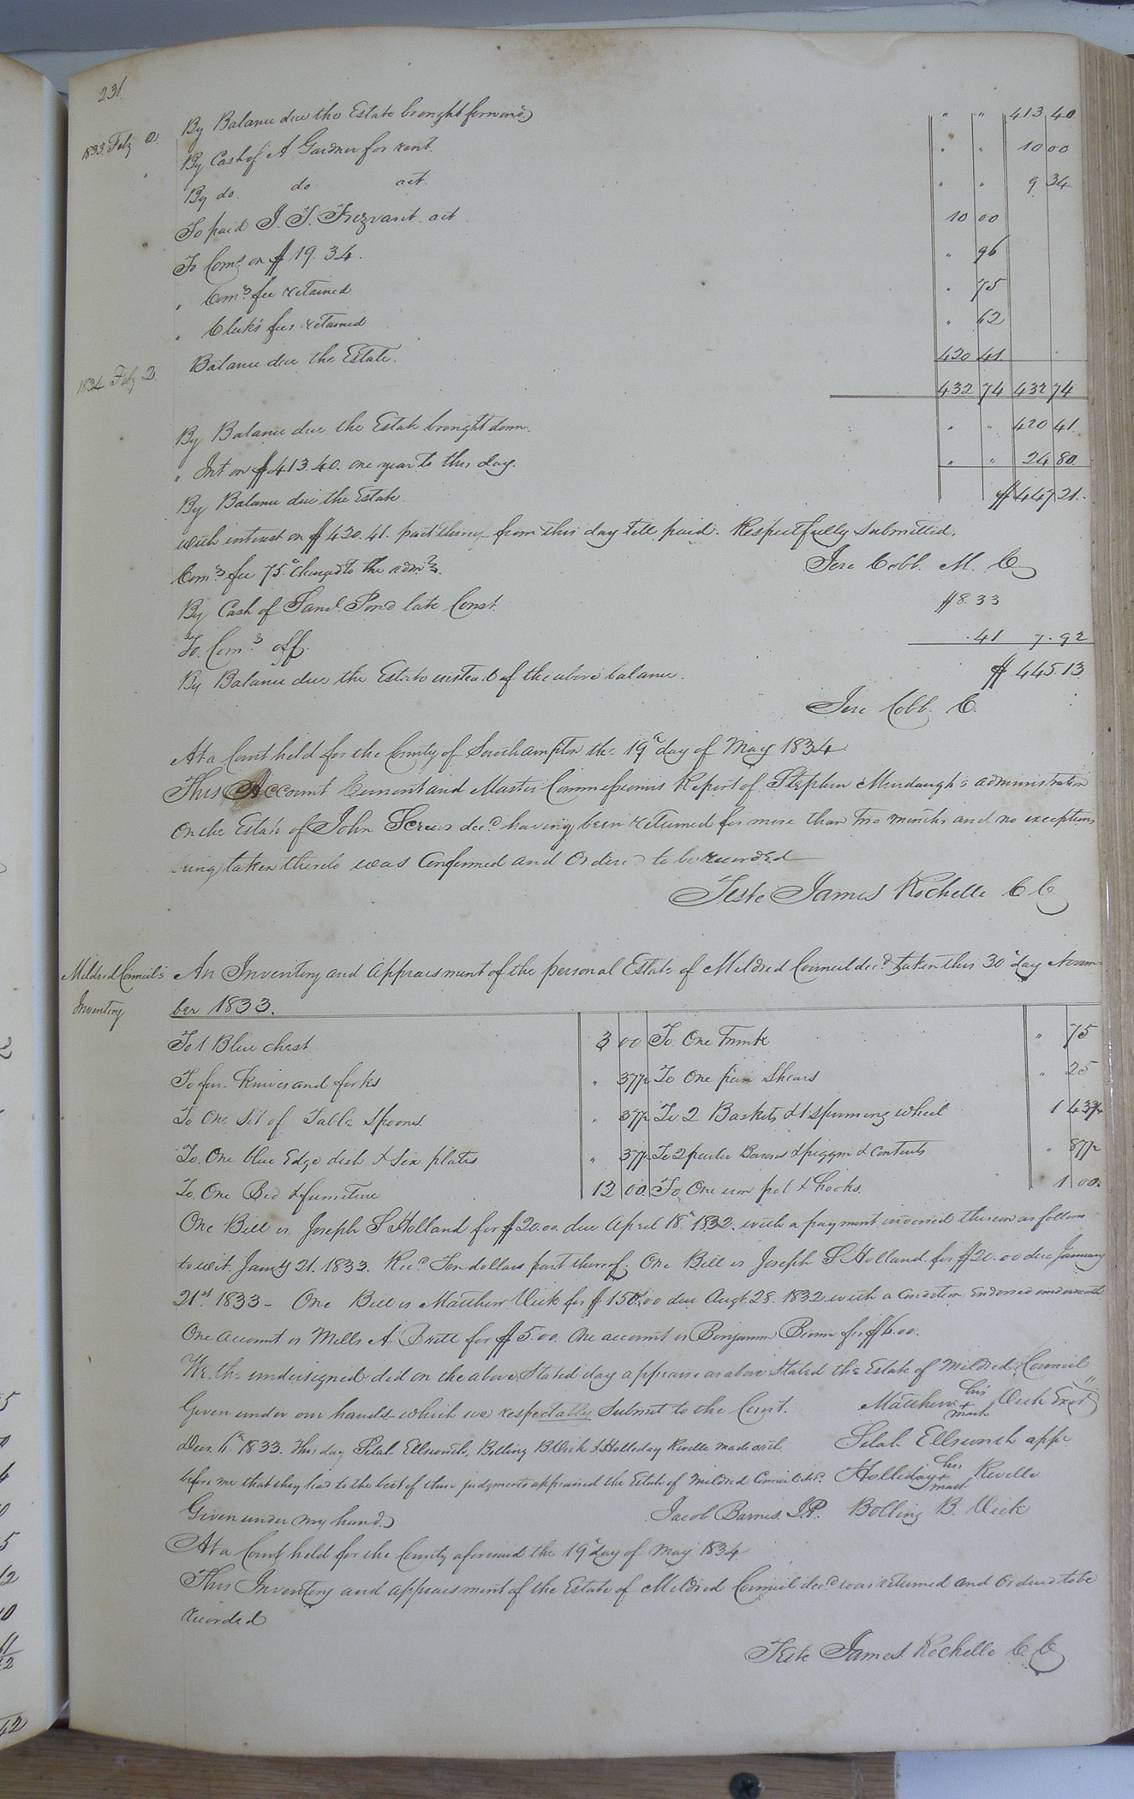 231
1833 Feby 2. By Balance due the Estate brought forward " " 413 40
By Cash of A Gardner for rent. " " 10 00
By do. do act. " " 9 34
To paid J. T. Trezvant act 10 00
To Coms. on $19.34. " 96
" Coms. fee retained " 75
" Clerks fees retained " 62
1834 Feby 2. Balance due the Estate. 420 41
432 74 432 74
By Balance due the Estate brought down. " " 420 41.
" Int on $413.40. one year to this day. " " 24 80
By Balance due the Estate $447 21.
with interest on $420.41. part thereof from this day till paid. Respectfully Submitted,
Coms. fee 75c. charged to the admr. Jere Cobb. M. C
By Cash of Saml. Pond late Const. $8.33
To Coms. off .41 7.92
By Balance due the Estate instead of the above balance. $445.13
Jere Cobb C.
At a Court held for the County of Southampton the 19th day of May 1834
This Account Current and Master Commissioners Report of Stephen Murdaugh's administration
on the Estate of John decd. having been returned for more than two months and no exceptions
being taken thereto was Confirmed and Ordered to be recorded
Teste James Rochelle C C
Mildred Council's
Inventory
An Inventory and Appraisment of the personal Estate of Mildred Council decd. taken this 30th day Novem
ber 1833.
To 1 Blue chest 3 00 To One Trunk " 75
To Knives and forks " 37½ To One pair Shears " 25
To One Set of Table Spoons " 37½ To 2 Baskets & 1 spinning wheel 1 43¾
To One blue Edge dish & Six plates " 37½ To 2 pewter Basons & piggin & Contents " 87½
To One Bed & furniture 12 00 To One iron pot & hooks. 1 00.
One Bill vs Joseph S Holland for $20.00 due April 18th 1832. with a payment indorsed thereon as follows
to wit. Jany 21. 1833. Recd Ten dollars part thereof. One Bill vs Joseph S Holland for $20.00 due January
21st 1833 - One Bill vs Matthew Vick for $150.00 due Augt 28. 1832 with a Condition Endorsed underneath
One account vs Mills A. Britt for $5.00. One account vs Benjamin for $6.00.
We the undersigned did on the above Stated day appraise as above Stated the Estate of Mildred Council
Given under our hands which we respectably Submit to the Court. Matthew his + mark Vick Exor
Decr. 6th 1833. This day Selal. Ellsworth, Bolling B. Vick & Holliday Revelle made oath Selal. Ellsworth appr
before me that they had to the best of their judgments appraised the Estate of Mildred Council decd. Holliday his + mark Revelle
Given under my hand. Jacob Barnes. J.P. Bolling B. Vick
At a Court held for the County aforesaid the 19th day of May 1834
This Inventory and Appraisment of the Estate of Mildred Council decd was returned and Ordered to be
recorded
Teste James Rochelle C. C